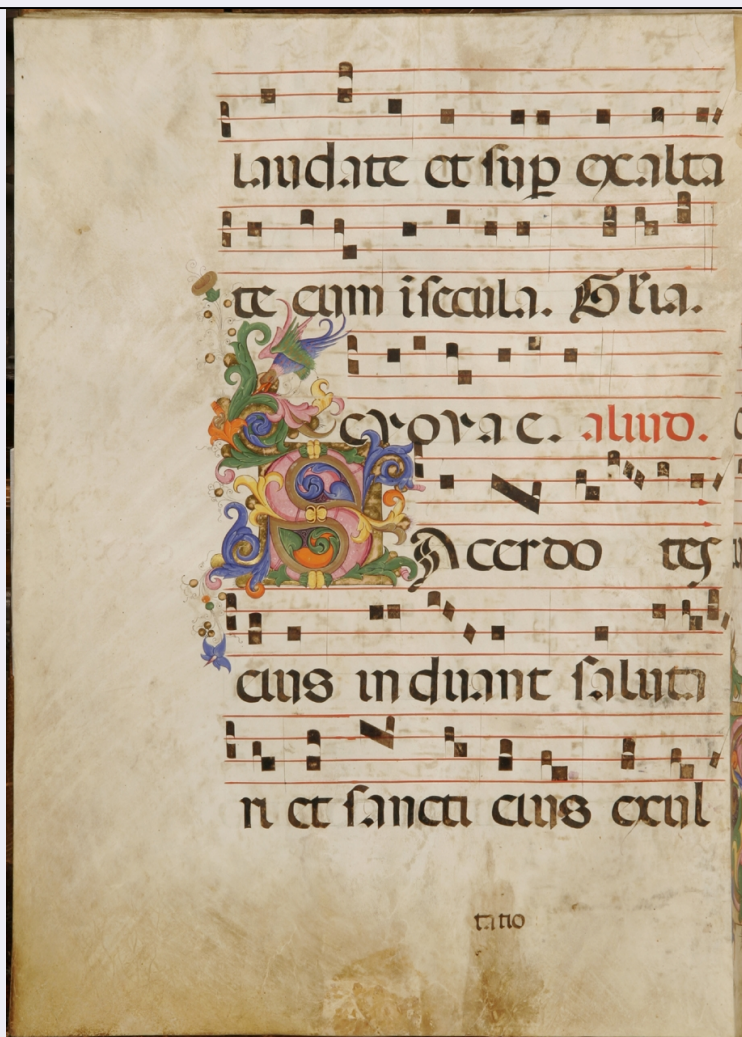 laudate et sup exalta
te eum i secula. Glia.
evovae. aliud.
Sacerdo tes
eius induant saluta
ri et sancti eius exul
tatio